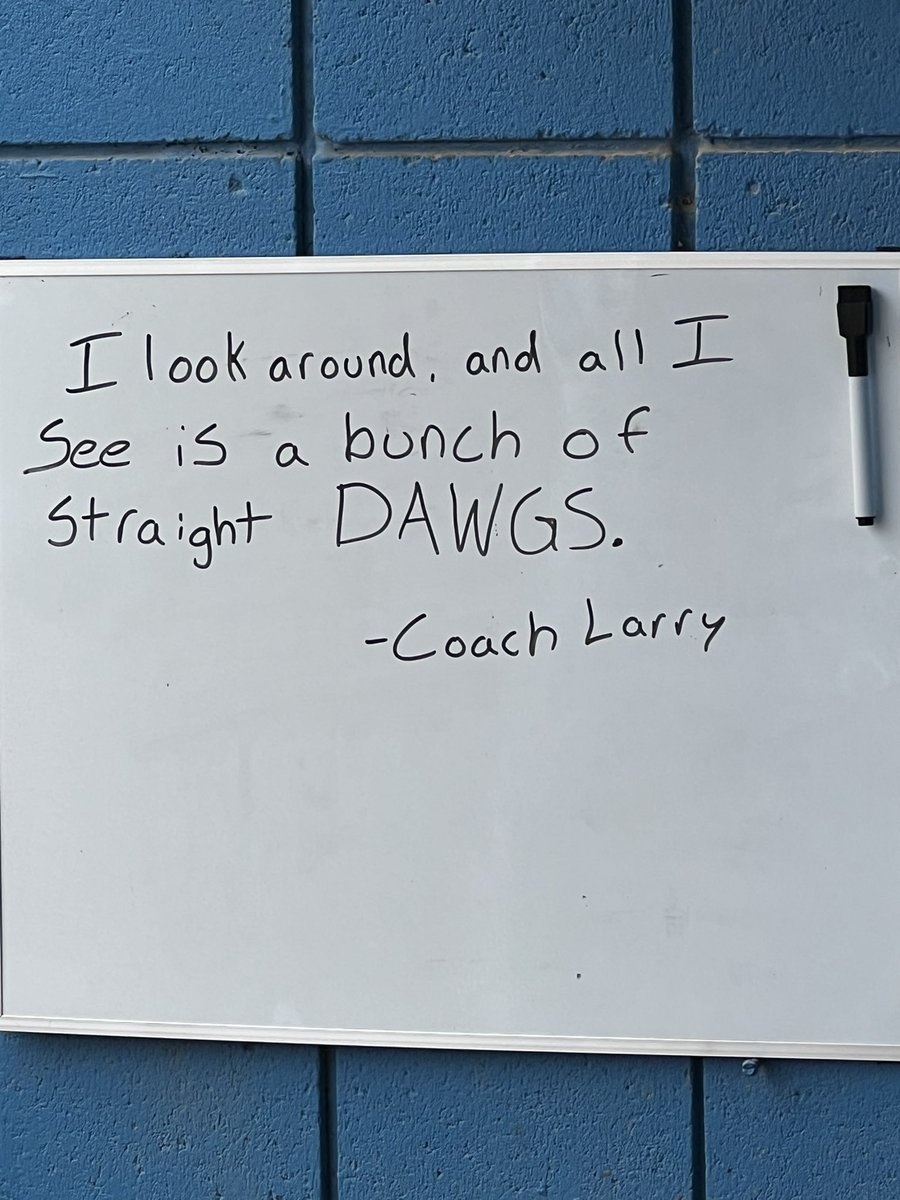 I look around, and all I
See is a bunch of
Straight DAWGS.
-Coach Larry